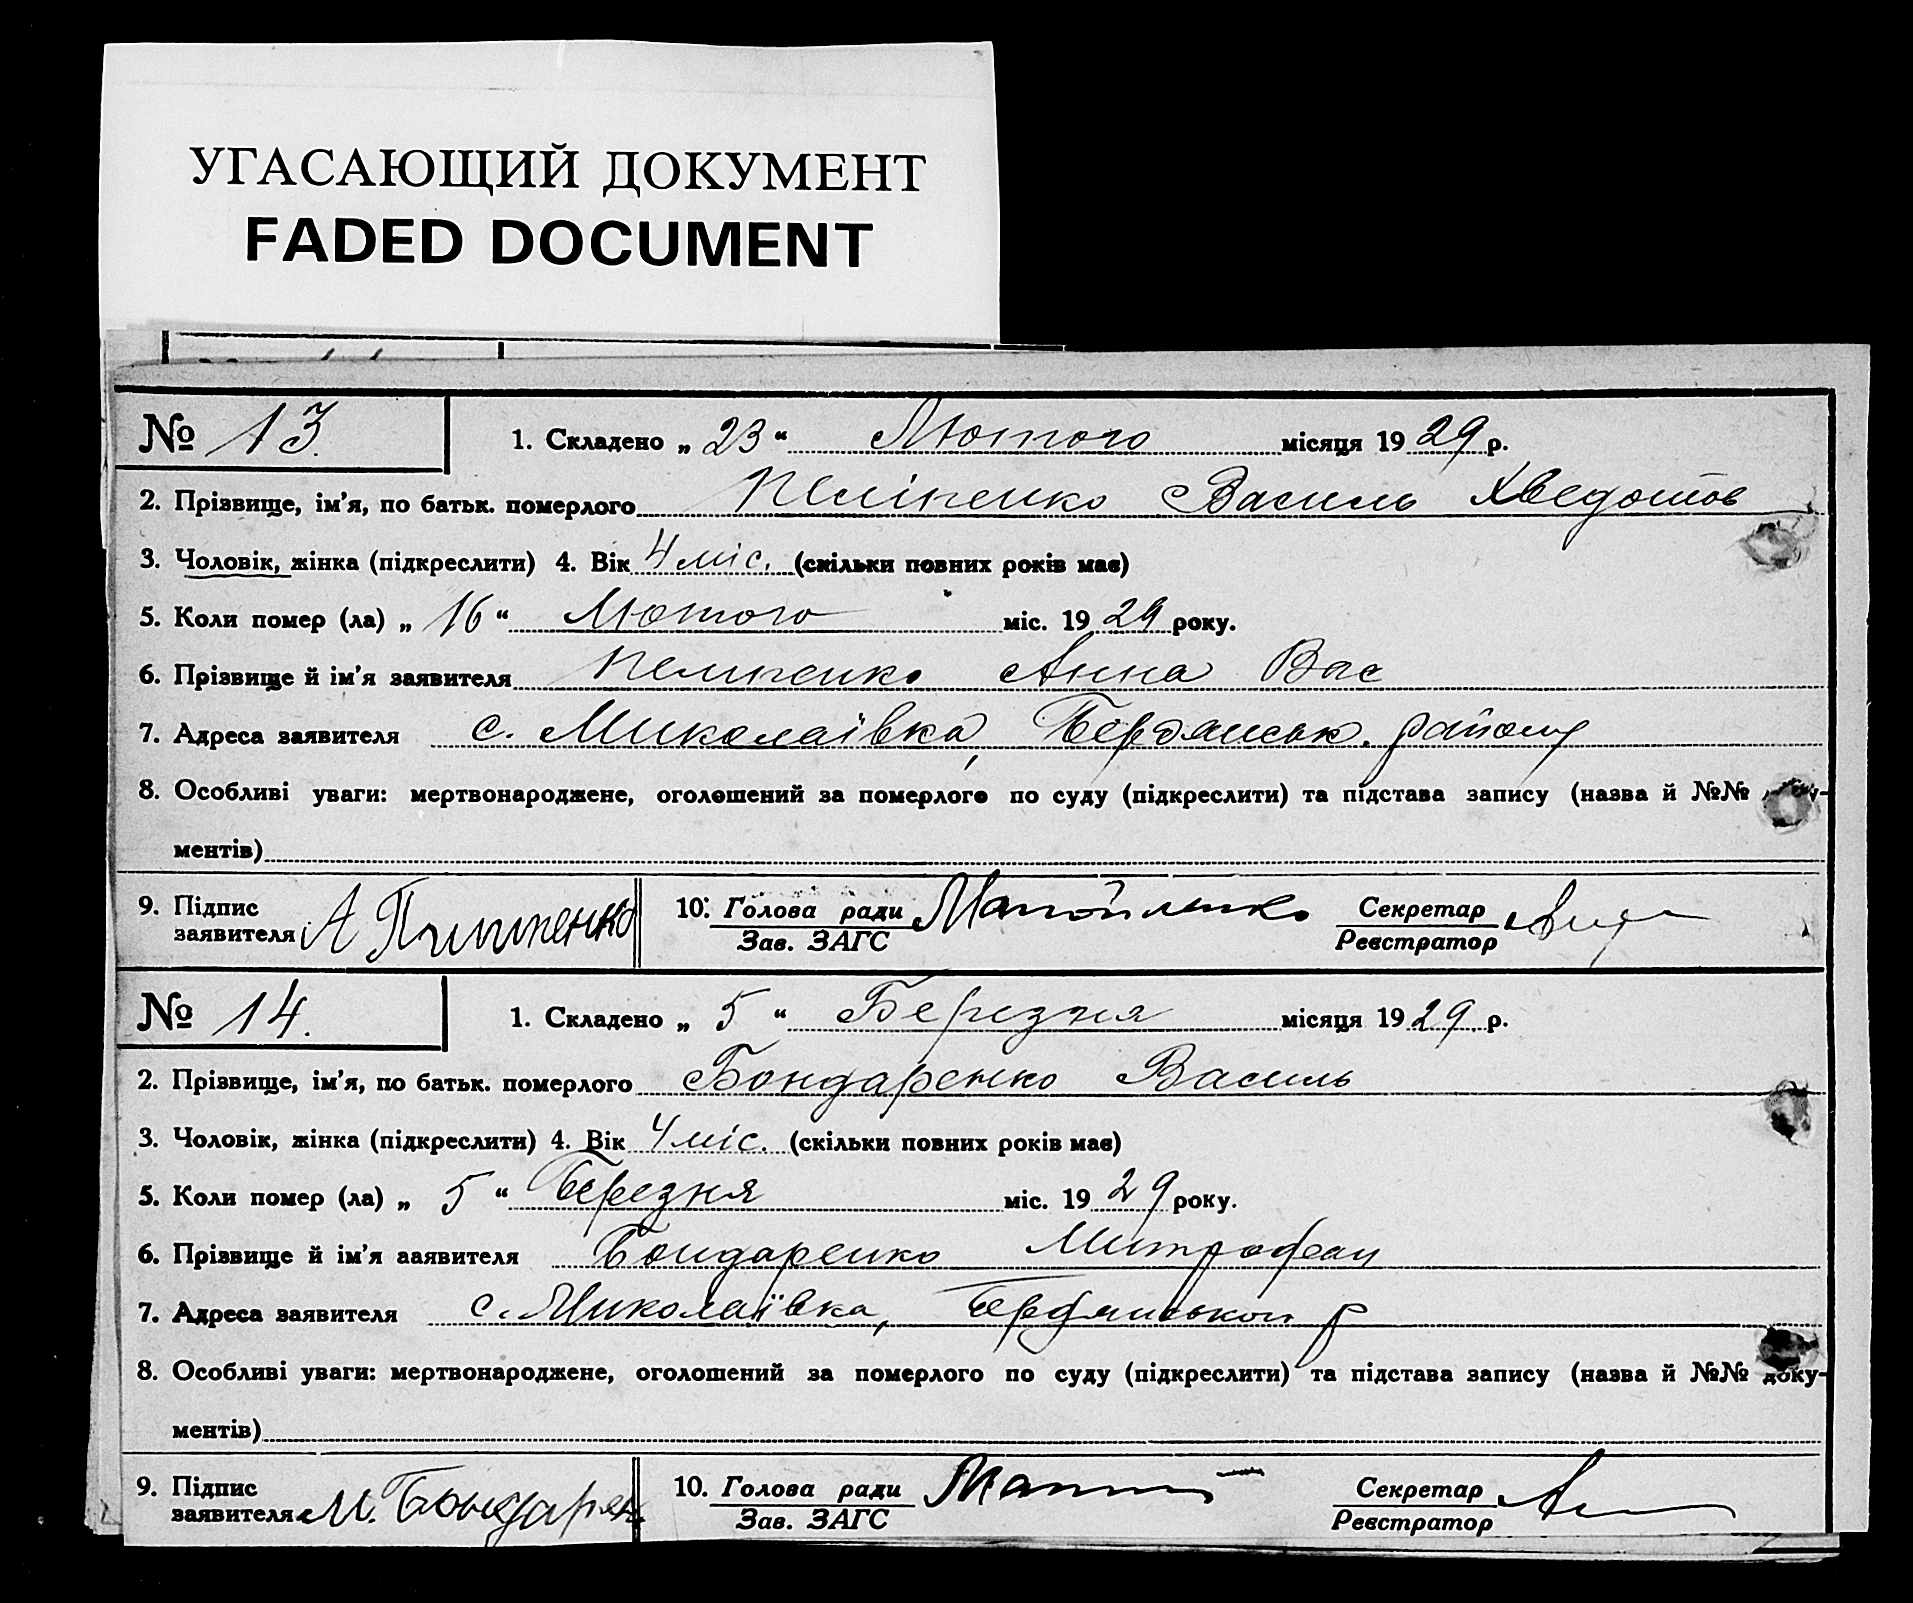 УГАСАЮЩИЙ ДОКУМЕНТ
FADED DOCUMENT
№ 13.
1. Складено „ 23 “ Лютого місяця 19 29 р.
2. Прізвище, ім'я, по батьк. померлого Василь Хведотов
3. Чоловік, жінка (підкреслити) 4. Вік 4 міс. (скільки повних років має)
5. Коли помер (ла) „ 16 “ Лютого міс. 19 29 року.
6. Прізвище й ім'я заявителя Анна Вас
7. Адреса заявителя с. Миколаївка, Бердянськ. району
8. Особливі уваги: мертвонароджене, оголошений за померлого по суду (підкреслити) та підстава запису (назва й №№
ментів)
9. Підпис
заявителя А
10. Голова ради
Зав. ЗАГС
Секретар
Реєстратор
№ 14.
1. Складено „ 5 “ Березня місяця 19 29 р.
2. Прізвище, ім'я, по батьк. померлого Бондаренко Василь
3. Чоловік, жінка (підкреслити) 4. Вік 4 міс. (скільки повних років має)
5. Коли помер (ла) „ 5 “ Березня міс. 19 29 року.
6. Прізвище й ім'я ааявителя Бондаренко Митрофан
7. Адреса заявителя с. Миколаївка, р
8. Особливі уваги: мертвонароджене, оголошений за померлого по суду (підкреслити) та підстава запису (назва й №№ доку-
ментів)
9. Підпис
заявителя М. Бондарен
10. Голова ради
Зав. ЗАГС
Секретар
Реєстратор